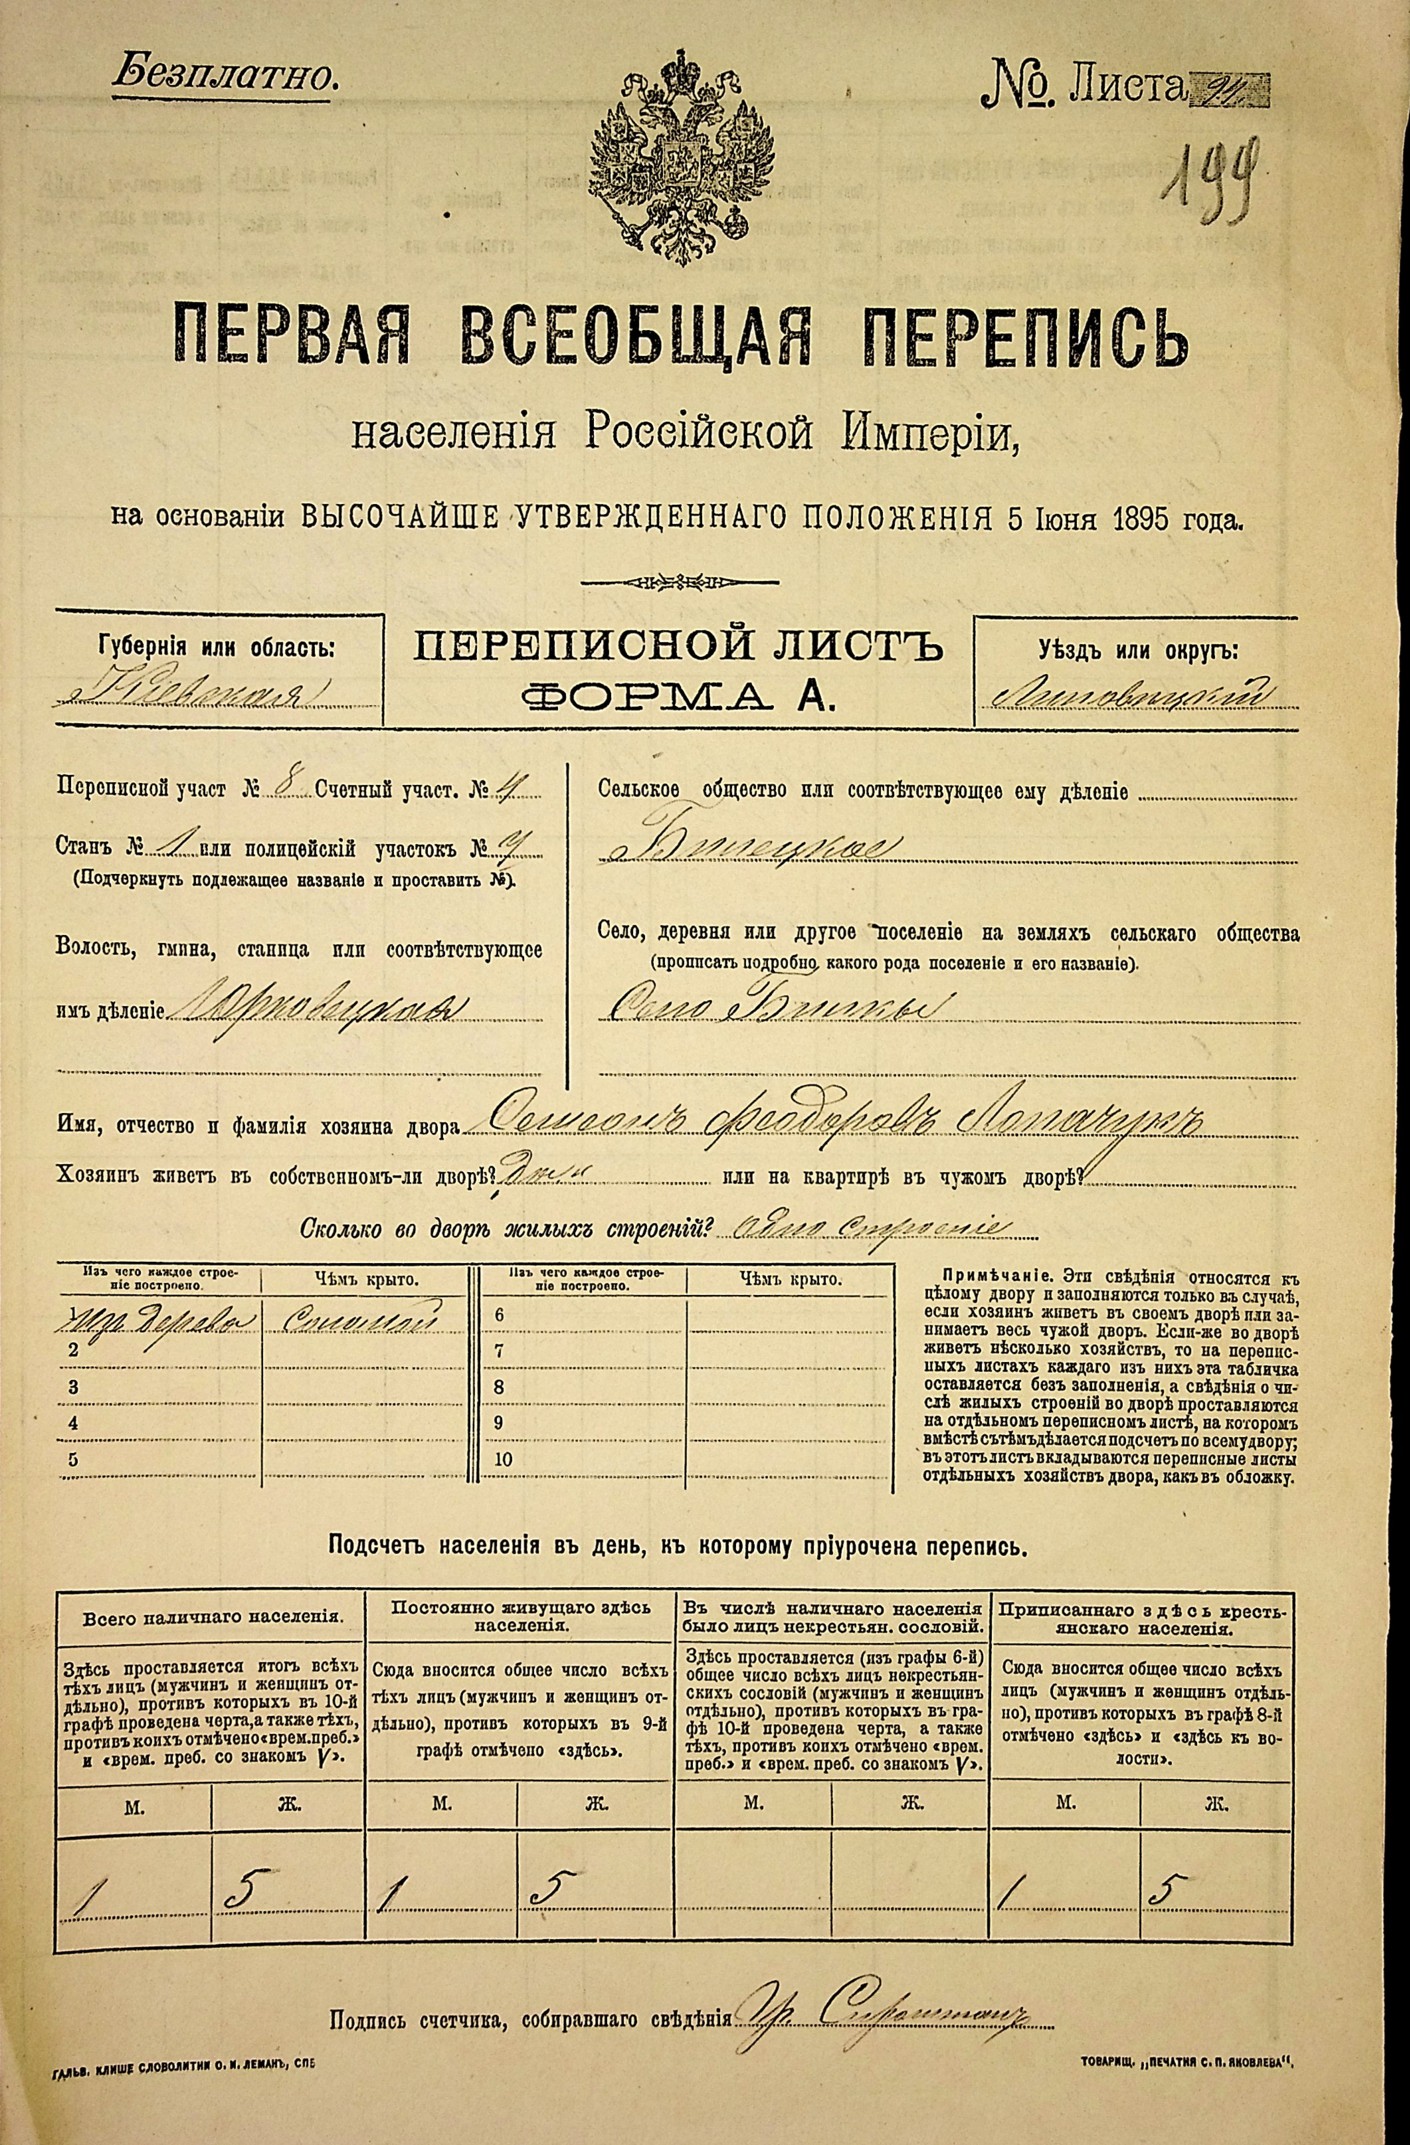 Безплатно.
№ Листа 94.
199
ПЕРВАЯ ВСЕОБЩАЯ ПЕРЕПИСЬ
населенія Россійской Имперіи,
на основаніи ВЫСОЧАЙШЕ УТВЕРЖДЕННАГО ПОЛОЖЕНІЯ 5 Іюня 1895 года.
Губернія или область:
Кіевская
ПЕРЕПИСНОЙ ЛИСТЪ
ФОРМА А.
Уѣздъ или округъ:
Липовецкий
Переписной участ № 8 Счетный участ. № 4
Станъ № 1 или полицейскій участокъ № 4
(Подчеркнуть подлежащее названіе и проставить №).
Волость, гмина, станица или соотвѣтствующее
имъ дѣленіе Юрковецкая
Сельское общество или соотвѣтствующее ему дѣленіе
Село, деревня или другое поселеніе на земляхъ сельскаго общества
(прописать подробно, какого рода поселеніе и его названіе).
Село
Имя, отчество и фамилія хозяина двора Семеонъ Феодоровъ Лопачукъ
Хозяинъ живетъ въ собственномъ-ли дворѣ? или на квартирѣ въ чужомъ дворѣ?
Сколько во дворѣ жилыхъ строеній? одно строеніе
Изъ чего каждое строе-
ніе построено.
Чѣмъ крыто.
Изъ чего каждое строе-
ніе построено.
Чѣмъ крыто.
1 изъ дерева Соломой 6
2 7
3 8
4 9
5 10
Примѣчаніе. Эти свѣдѣнія относятся къ
цѣлому двору и заполняются только въ случаѣ,
если хозяинъ живетъ въ своемъ дворѣ или за-
нимаетъ весь чужой дворъ. Если-же во дворѣ
живетъ нѣсколько хозяйствъ, то на перепис-
ныхъ листахъ каждаго изъ нихъ эта табличка
оставляется безъ заполненія, а свѣдѣнія о чи-
слѣ жилыхъ строеній во дворѣ проставляются
на отдѣльномъ переписномъ листѣ, на которомъ
вмѣстѣ съ тѣмъ дѣлается подсчетъ по всему двору;
въ этотъ листъ вкладываются переписные листы
отдѣльныхъ хозяйствъ двора, какъ въ обложку.
Подсчетъ населенія въ день, къ которому пріурочена перепись.
Всего наличнаго населенія.
Здѣсь проставляется итогъ всѣхъ
тѣхъ лицъ (мужчинъ и женщинъ от-
дѣльно), противъ которыхъ въ 10-й
графѣ проведена черта, а также тѣхъ,
противъ коихъ отмѣчено «врем. преб.»
и «врем. преб. со знакомъ V».
Постоянно живущаго здѣсь
населенія.
Сюда вносится общее число всѣхъ
тѣхъ лицъ (мужчинъ и женщинъ от-
дѣльно), противъ которыхъ въ 9-й
графѣ отмѣчено «здѣсь».
Въ числѣ наличнаго населенія
было лицъ некрестьян. сословій.
Здѣсь проставляется (изъ графы 6-й)
общее число всѣхъ лицъ некрестьян-
скихъ сословій (мужчинъ и женщинъ
отдѣльно), противъ которыхъ въ гра-
фѣ 10-й проведена черта, а также
тѣхъ, противъ коихъ отмѣчено «врем.
преб.» и «врем. преб. со знакомъ V».
Приписаннаго здѣсь кресть-
янскаго населенія.
Сюда вносится общее число всѣхъ
лицъ (мужчинъ и женщинъ отдѣль-
но), противъ которыхъ въ графѣ 8-й
отмѣчено «здѣсь» и «здѣсь къ во-
лости».
М. Ж. М. Ж. М. Ж. М. Ж.
1 5 1 5 1 5
Подпись счетчика, собиравшаго свѣдѣнія Гр.
ГАЛЬВ. КЛИШЕ СЛОВОЛИТНИ О. И. ЛЕМАНЪ, СПБ
ТОВАРИЩ. „ПЕЧАТНЯ С. П. ЯКОВЛЕВА“.